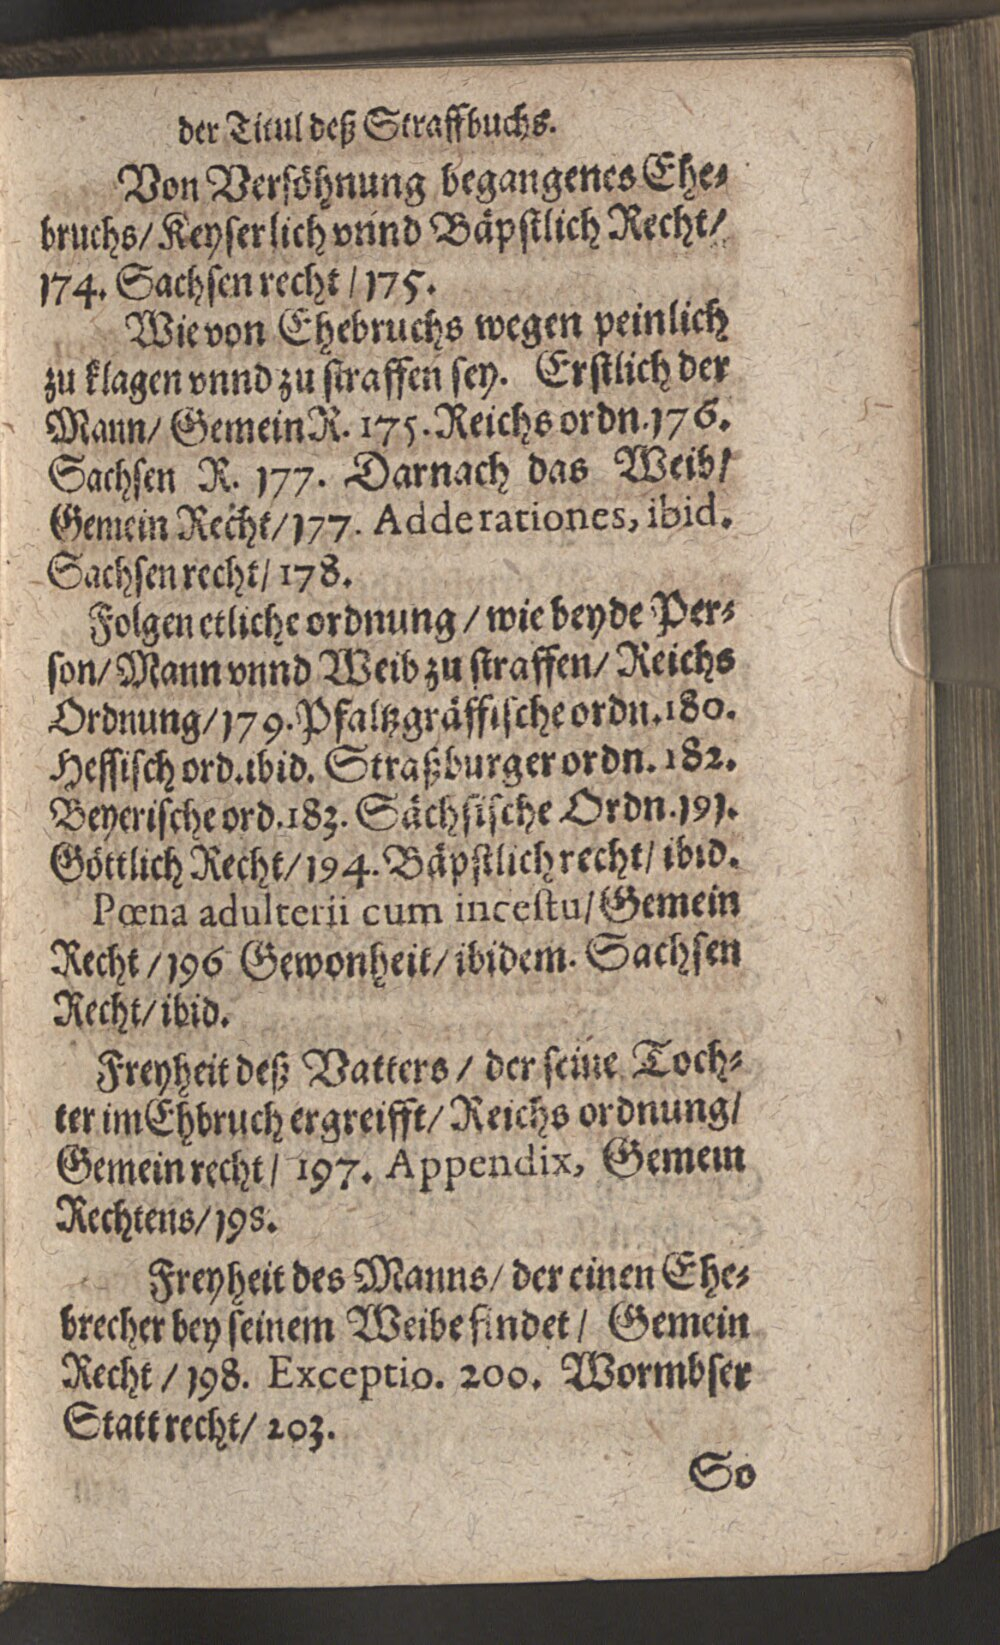 der Titul deß Straffbuchs.
Von Versöhnung begangenes Ehe-
bruchs/ Keyserlich vnnd Bäpstlich Recht/
174. Sachsen recht / 175.
Wie von Ehebruchs wegen peinlich
zu klagen vnnd zu straffen sey. Erstlich der
Mann/ Gemein R. 175. Reichs ordn. 176.
Sachsen R. 177. Darnach das Weib/
Gemein Recht/ 177. Adde rationes, ibid.
Sachsen recht/ 178.
Folgen etliche ordnung / wie beyde Per-
son/ Mann vnnd Weib zu straffen/ Reichs
Ordnung/ 179. Pfaltzgräffische ordn. 180.
Hessisch ord. ibid. Straßburger ordn. 182.
Beyerische ord. 183. Sächsische Ordn. 191.
Göttlich Recht/ 194. Bäpstlich recht/ ibid.
Pœna adulterii cum incestu/ Gemein
Recht / 196 Gewonheit/ ibidem. Sachsen
Recht/ ibid.
Freyheit deß Vatters / der seine Toch-
ter im Ehbruch ergreifft/ Reichs ordnung/
Gemein recht/ 197. Appendix, Gemein
Rechtens/ 198.
Freyheit des Manns/ der einen Ehe-
brecher bey seinem Weibe findet/ Gemein
Recht / 198. Exceptio. 200. Wormbser
Statt recht/ 203.
So